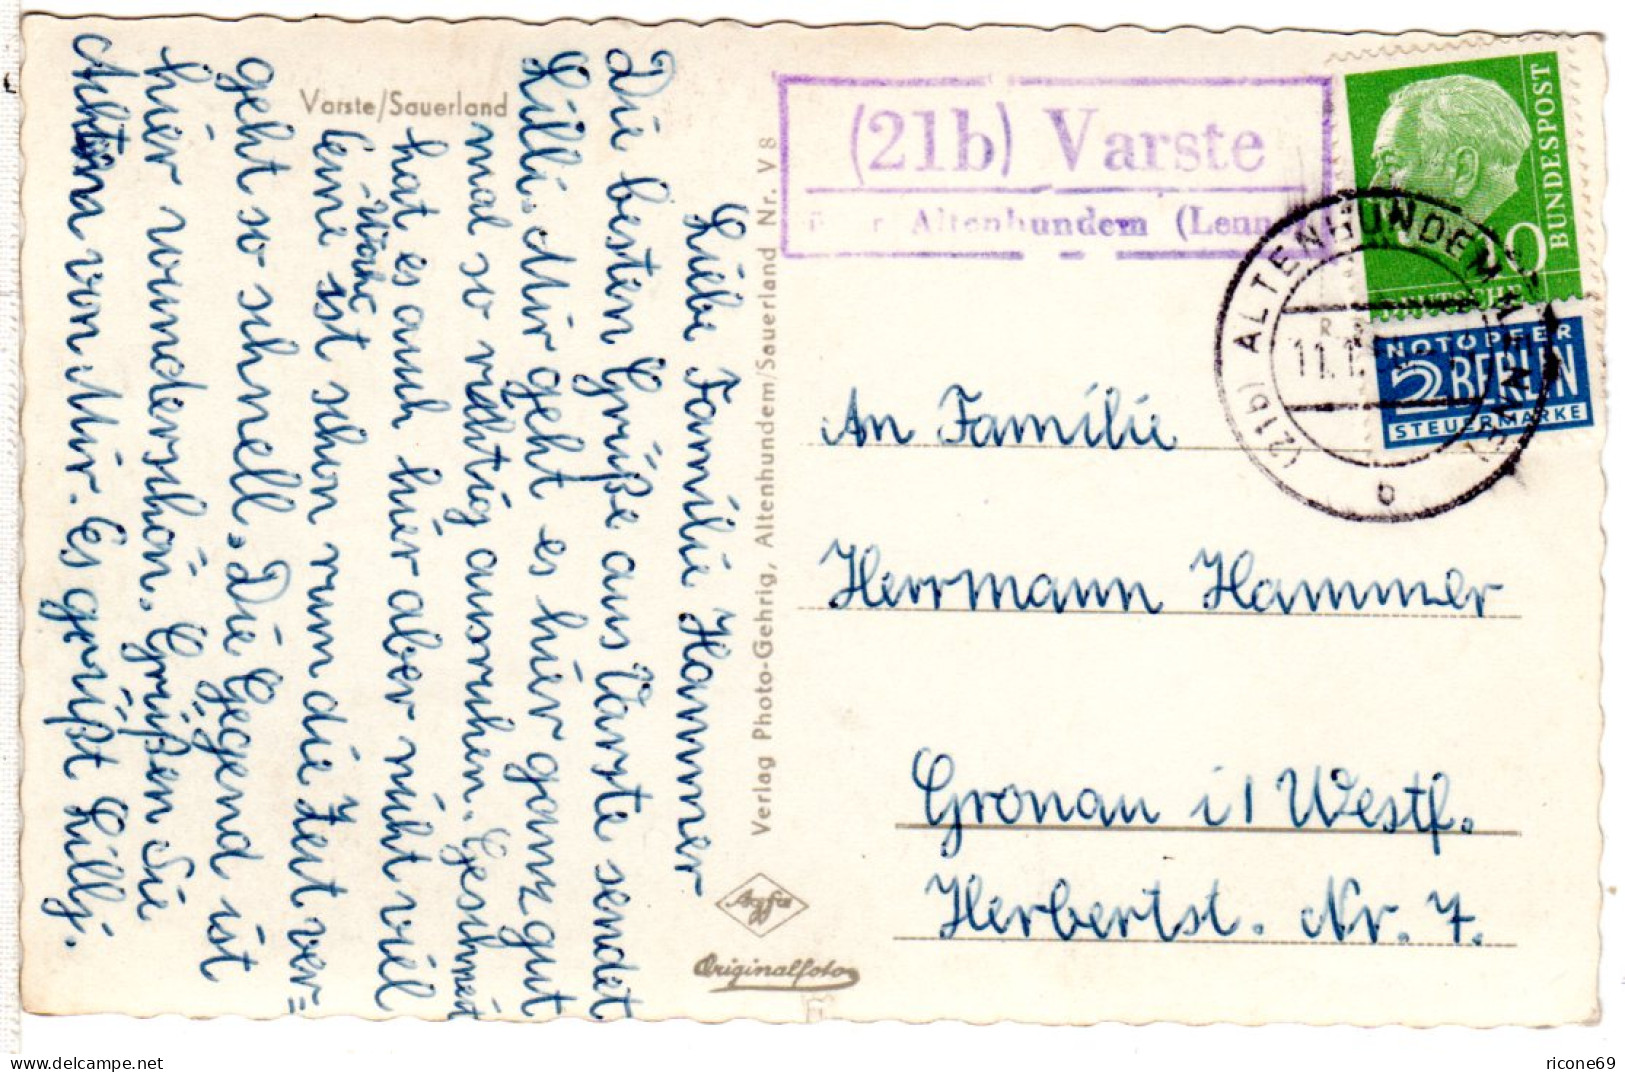 Varste/Sauerland
Liebe Familie Hammer
Die besten Grüße aus Varste sendet
Lilli. Mir geht es hier ganz gut
mal so richtig ausruhen. Geschneit
hat es auch hier aber nicht viel
Eine Woche ist schon rum die Zeit ver=
geht so schnell. Die Gegend ist
hier wunderschön. Grüßen Sie
von Mir. Es grüßt Lilly.
Verlag Photo-Gehrig, Altenhundem/Sauerland Nr. V 8
Agfa
Originalfoto
(21b) Varste
Altenhundem (Lenne)
BUNDESPOST
NOTOPFER
2 BERLIN
STEUERMARKE
(21b) ALTENHUNDEM
11.1.
b
An Familie
Herrmann Hammer
Gronau i/ Westf.
Herbertst. Nr. 7.
ricone69